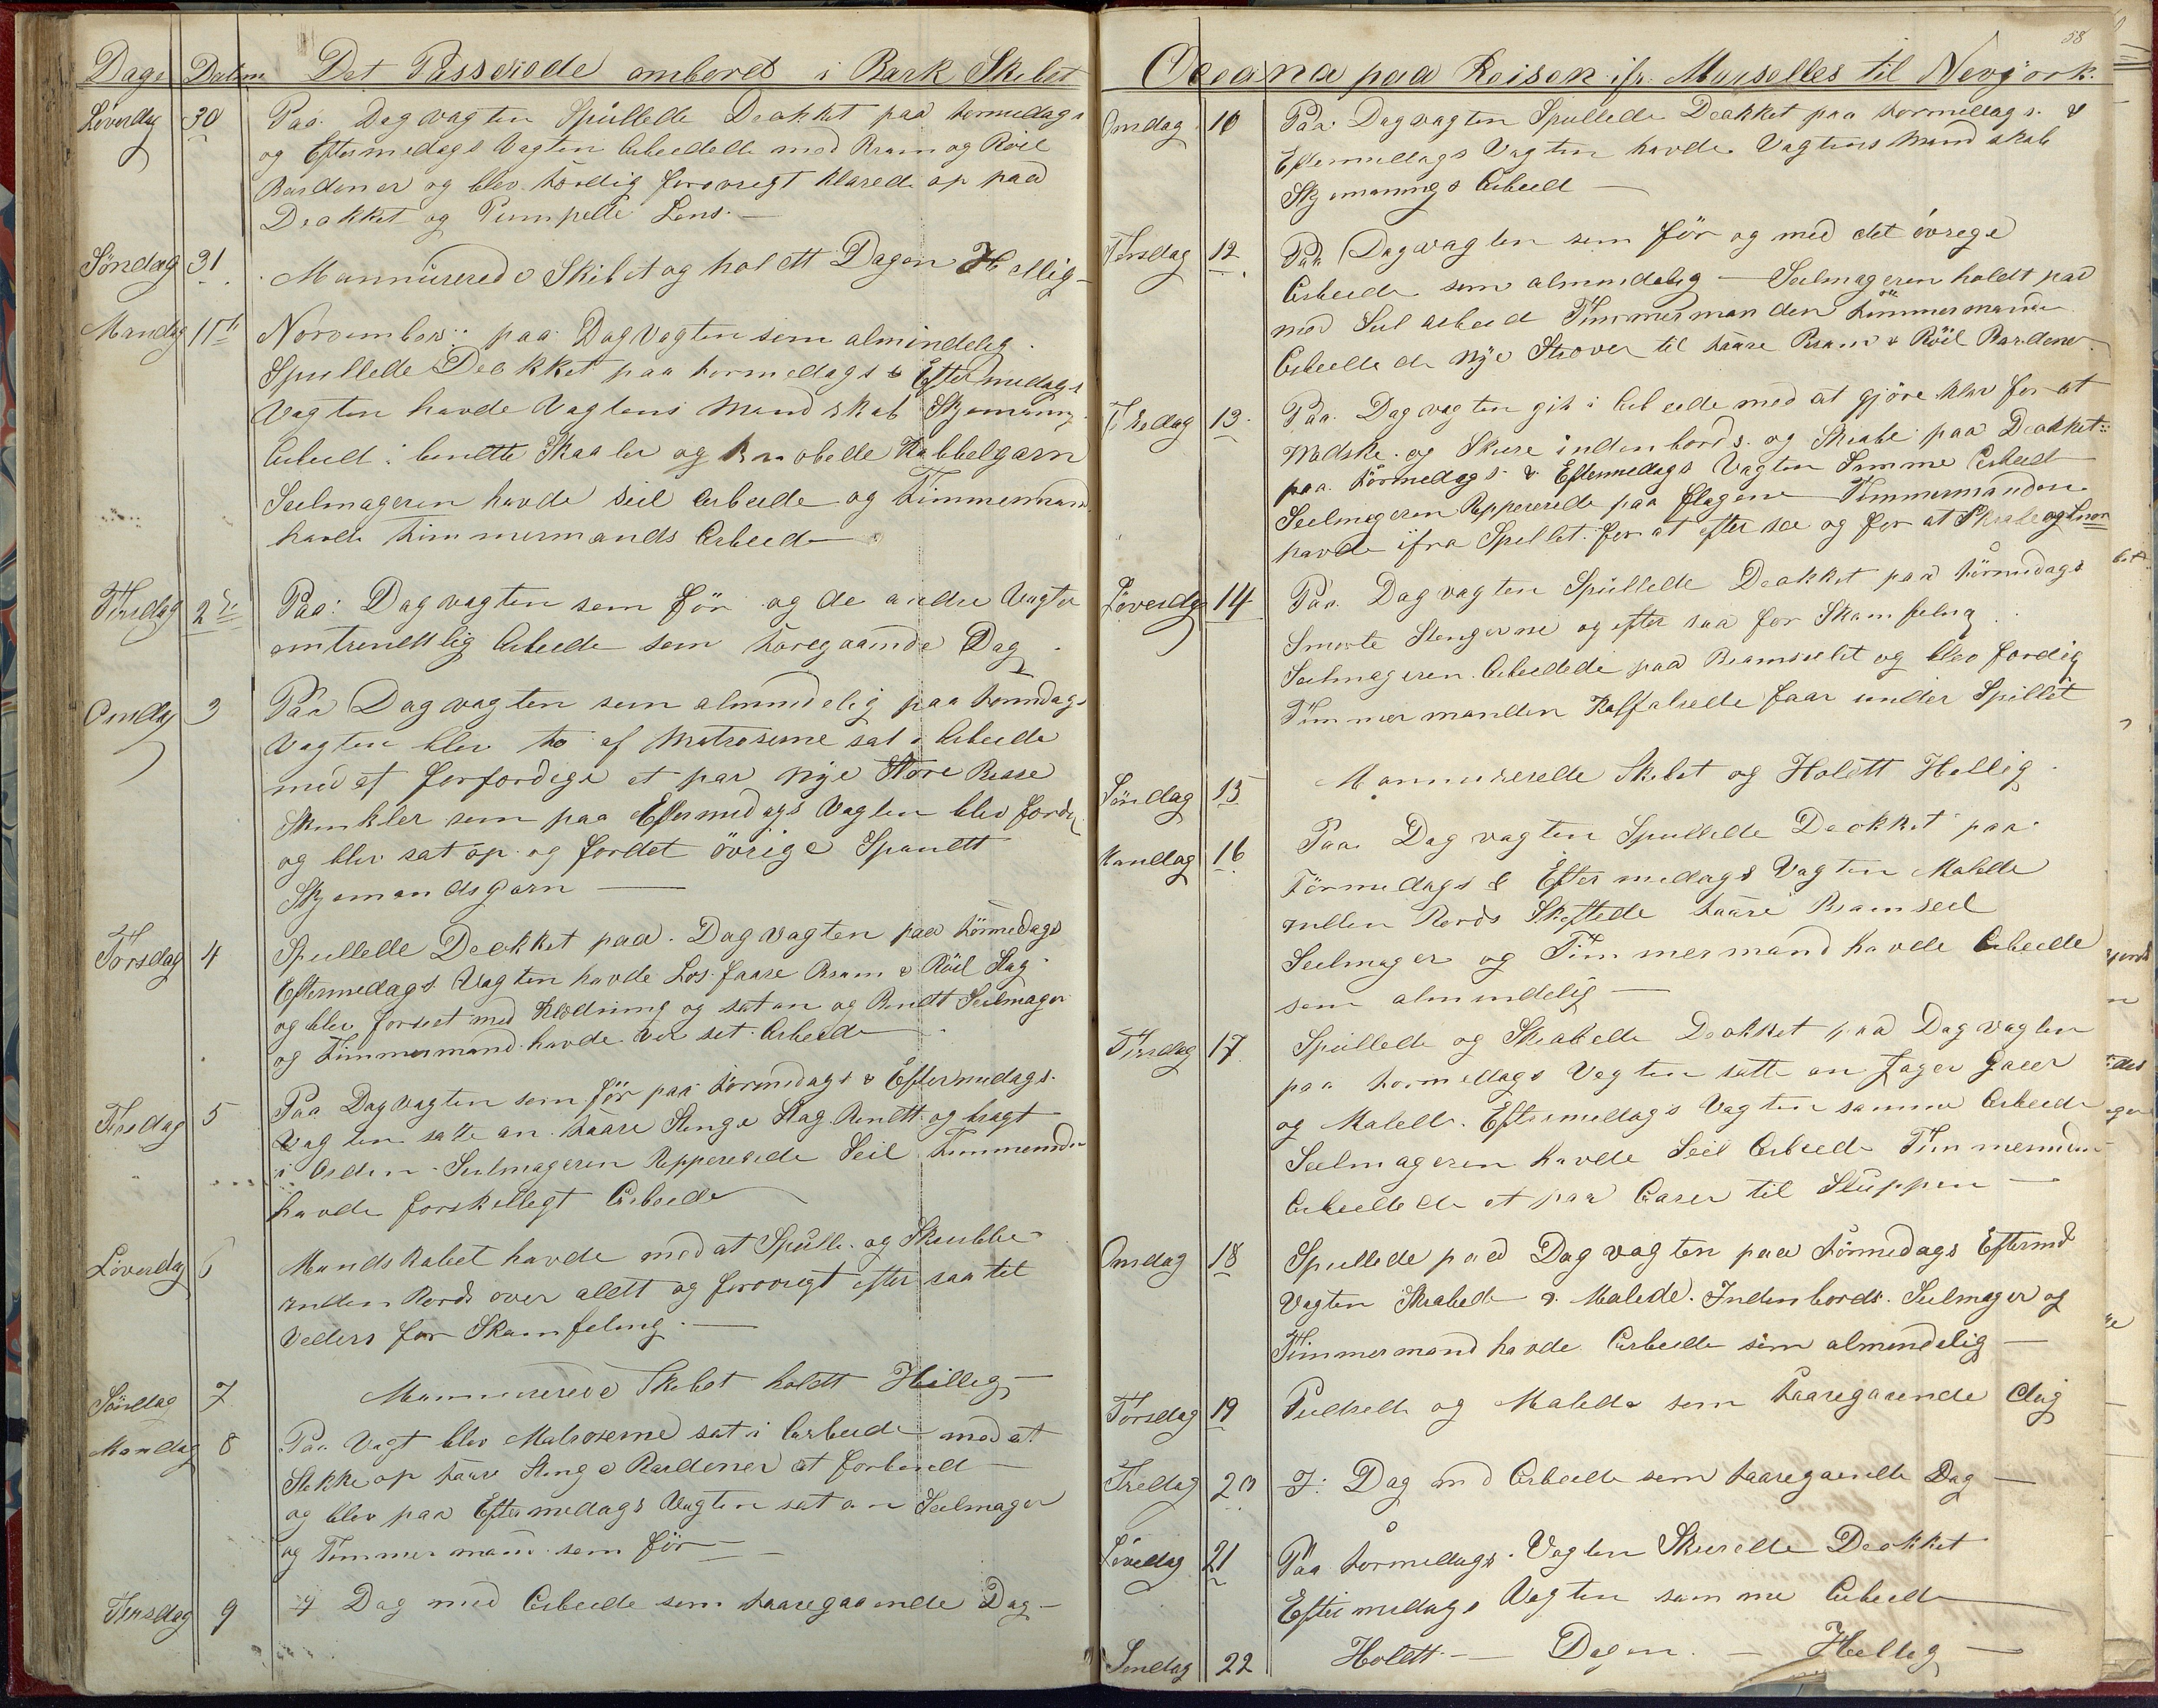 Dage Datum Det Passerede ombord i Bark Skibet
Løverdag 30 Paa Dagvagten Spullede Deckket paa formedags
og Eftermedags Vagten Arbeidede med Bram og Röil
Bardoner og blev færdig forövregt klarede op paa
Deckket og Pumpede Lens. —
Søndag 31. Mannuserede Skibet og holdt Dagen Hellig —
Mandag 1ste November: paa DagVagten som almindelig.
Spullede Deckket paa formedags & Eftermedags
Vagten havde Vagtens Mandskab Skjemanns
Arbeid: bendte Skaaler og knobede Kabbelgarn
Seilmageren havde Seil Arbeide og Timmermand
havde Timmermands Arbeide
Tirsdag 2den Paa: Dagvagten som för og de andre Vagter
omtrendtlig Arbeide som foregaaende Dag
Onsdag 3 Paa Dagvagten som almindelig paa formdags
Vagten blev to af Matroserne sat i Arbeide
med at forfærdige et par nye Store Brasse
Skinkler som paa Eftermedags Vagten blev færdig
og blev sat op og fordet övrige Spundt
Skjemandsgarn —
Torsdag 4 Spullede Deckket paa Dagvagten paa formedags
Eftermedags Vagten havde Los faare Bram & Röil Stag
og blev forseet med Klædning og sat an og Bendt Seilmager
og Timmermand havde ved set Arbeide
5 Paa Dagvagten som för paa formedags & Eftermedags
Vagten satte an faare Stenge Stag Bendt og bragt
i Orden - Seilmageren Reppererede Seil Timmermanden
havde forskellegt Arbeide
Løverdag 6 Mandskabet havde med at Spulle og Skrubbe
uden Bords over aldt og forövregt efter saa tel
Veders for Skamfeling. —
Søndag 7 Mannuserede Skibet holdt Hellig —
Mandag 8 Paa Vagt blev Matroserne sat i Arbeide med at
Stekke op faare Stenge Bardoner at forbened —
og blev paa Eftermedags Vagten sat an Seilmager
og Timmermand som för —
Tirsdag 9 I Dag med Arbeide som faaregaaende Dag —
58
Oceana paa Reisen ifr. Marselles til Nevyork.
Onsdag 10 Paa Dagvagten Spullede Deckket paa formedags &
Eftermedags Vagten havde Vagtens Mandskab
Skjemannings Arbeid —
Torsdag 12 Paa Dagvagten som för og med det övrege
Arbeide som almindelig — Seilmageren holdt paa
med Seil Arbeid Timmermanden Timmermanden
Arbeidede nye til faare Bram & Röil Bardoner
13 Paa Dagvagten gik i Arbeide med at gjöre klar for at
Vadske og Skure indenbords og Skrabe paa Deckket
paa formedags & Eftermedags Vagten Samme Arbeid
Seilmageren Reppererede paa flagene Timmermanden
havde ifra Spellet for at efter see og for at Skrabe og
Løverdag 14 Paa Dagvagten Spullede Deckket paa formedags
Smorte Stengerne og efter saa for Skamfeling
Seilmageren Arbeidede paa Bramseilet og blev færdig
Timmermanden Kalfatrede faar under Spillet
Søndag 15 Mannuserede Skibet og Holdt Hellig
Mandag 16 Paa Dagvagten Spullede Deckket paa
Formedags & Eftermedags Vagten Malede
uden Bords Skeftede faare Bramseil
Seilmager og Timmermand havde Arbeide
som almindelig —
Tirsdag 17 Spullede og Skrabede Deckket paa Dagvagten
paa formedags Vagten satte an Jager Gaier
og Malede. Eftermedags Vagten samme Arbeide
Seilmageren havde Seil Arbeide Timmermanden
Arbeidede et paar Aarer til Sluppen —
Onsdag 18 Spullede paa Dagvagten paa formedags Eftermed
Vagten Skrabede & Malede. Indenbords. Seilmager og
Timmermand havde Arbeide som almendelig —
Torsdag 19 Pudsede og Malede som faaregaaende Dag
Fredag 20 I: Dag med Arbeide som faaregaaende Dag —
Løverdag 21 Paa formedags Vagten Skurede Deckket
Eftermedags Vagten samme Arbeide
Søndag 22 Holdt — Dagen. — Hellig —